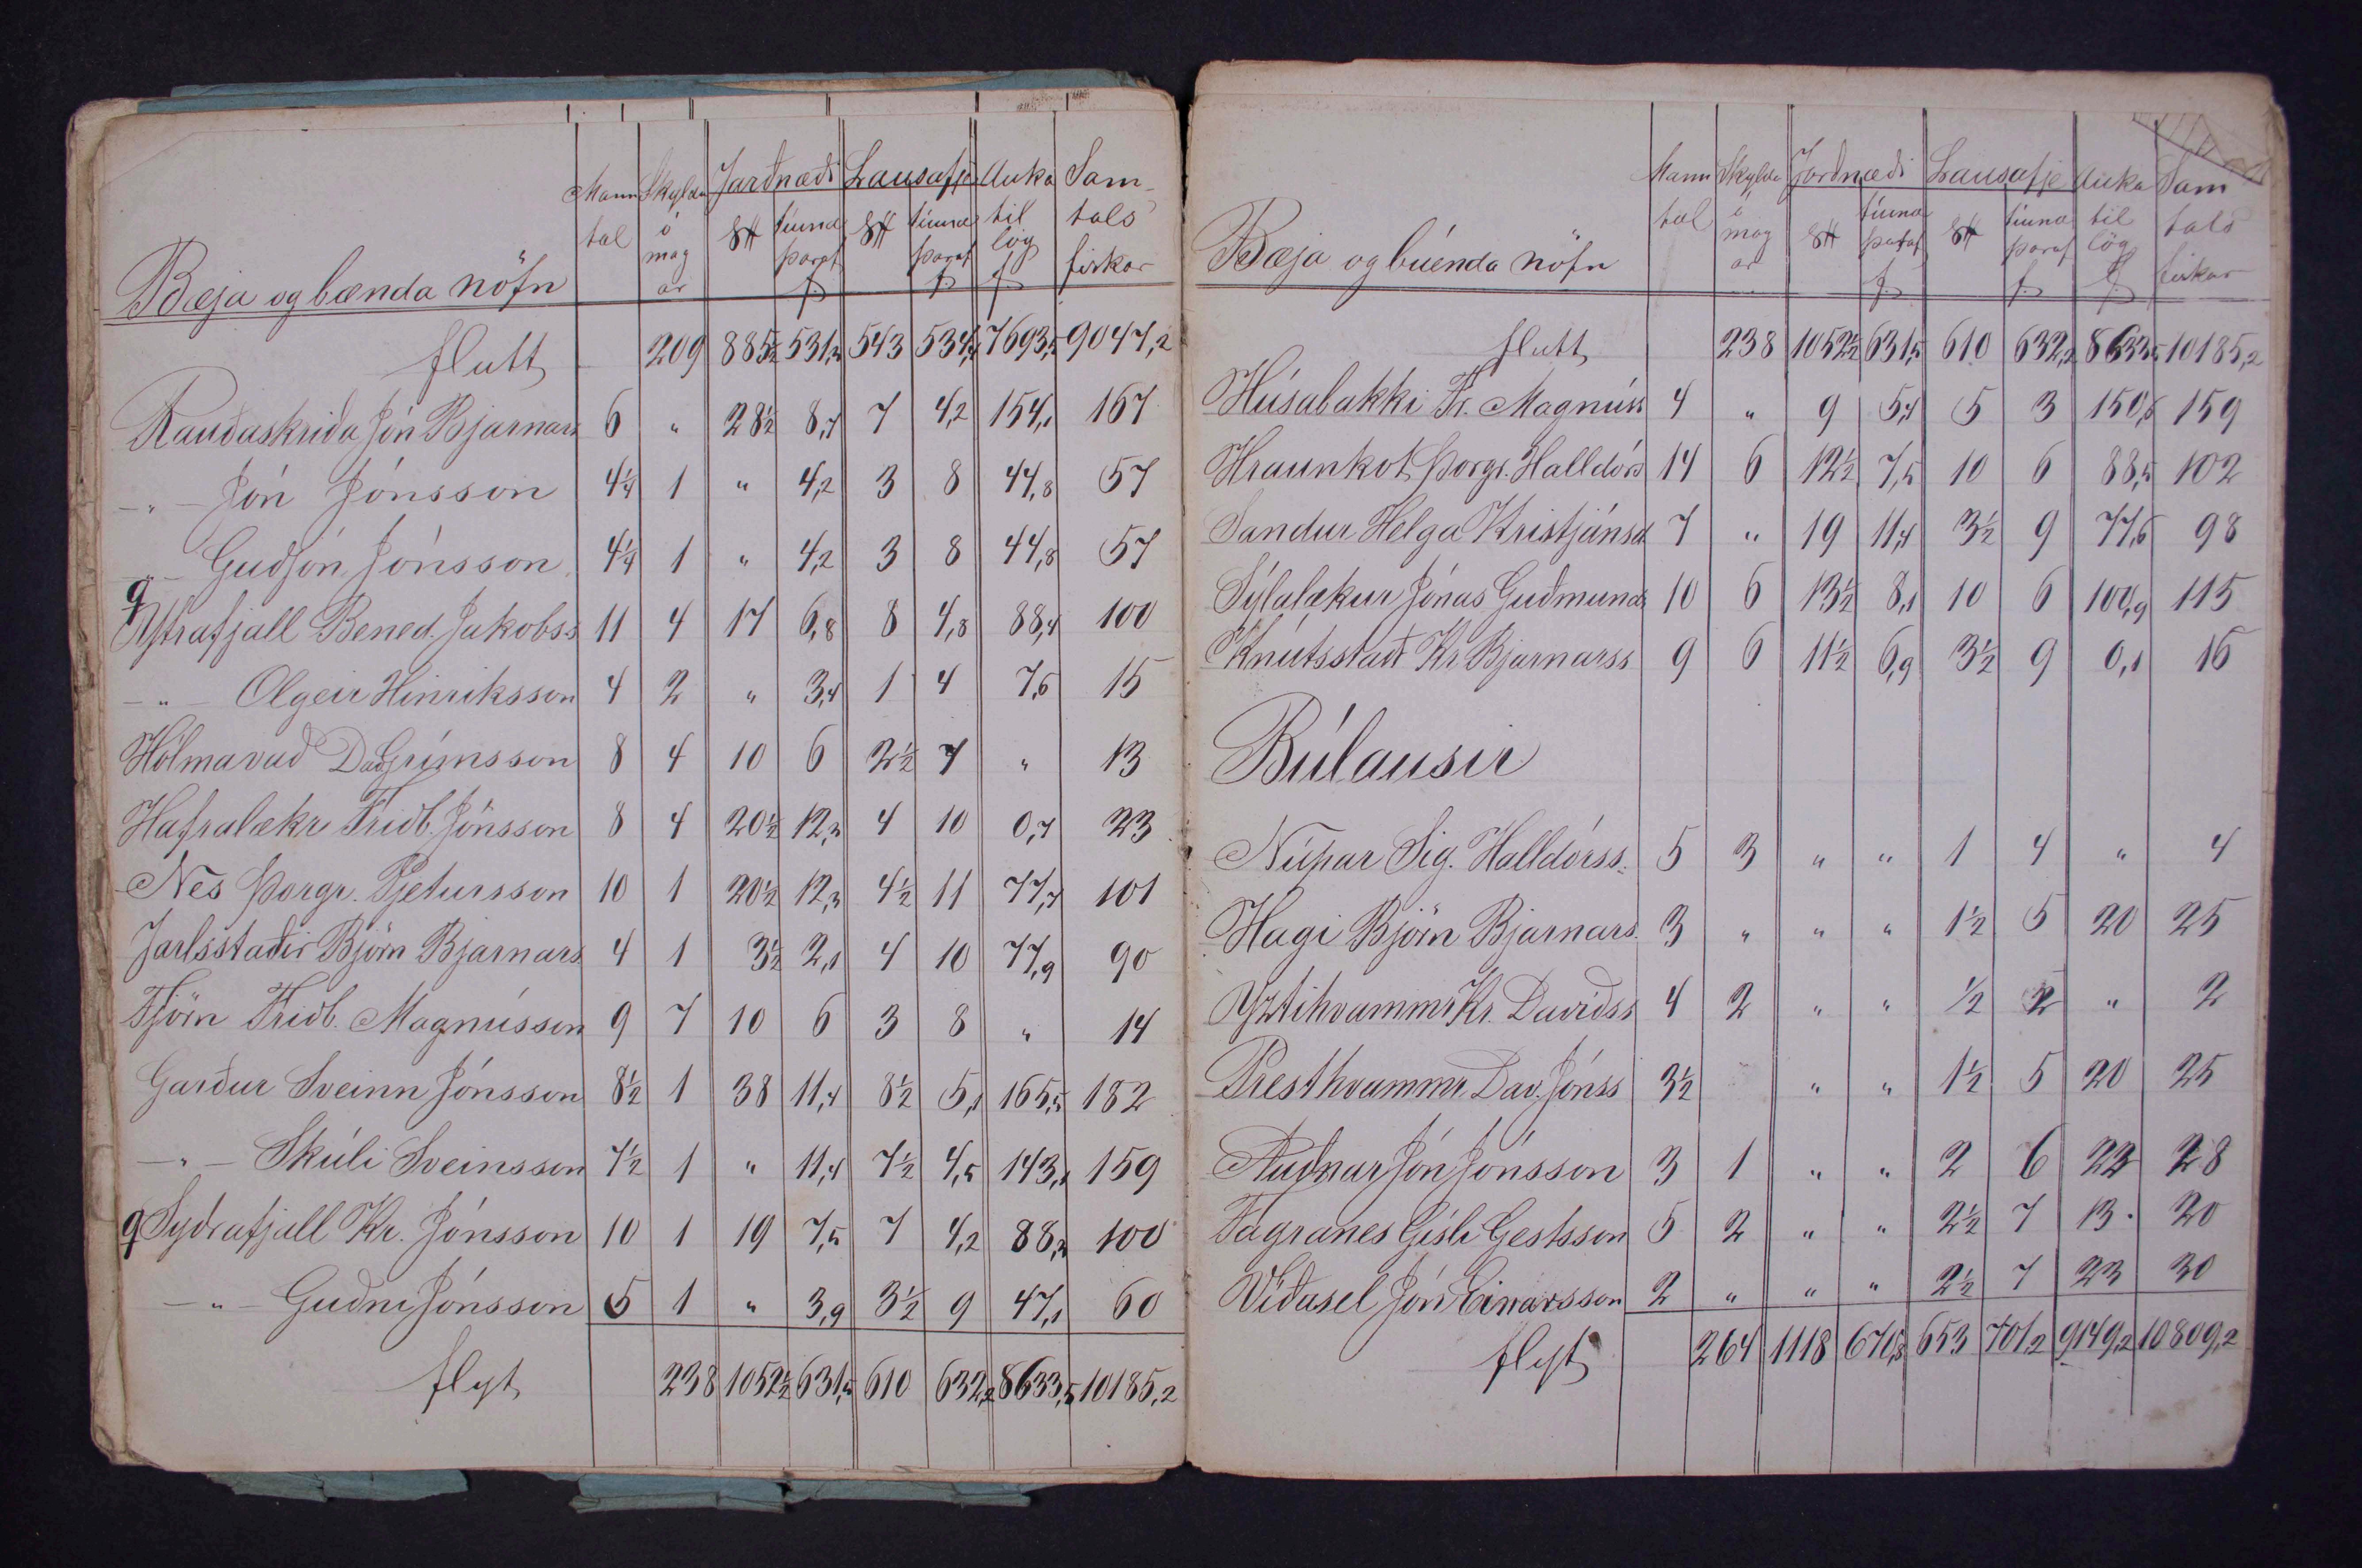 Mann Skyldu Jarðnæði Lausafje Auka Sam-
tal ó tíund tíund til tals
mag þaraf þaraf lög fiskar
ar f. f. f.
Bæja og bænda nöfn
flutt 209 885½ 531,3 543 534,4 7693,5 9047,2
Rauðaskriða Jón Bjarnars 6 " 28½ 8,7 7 4,2 154,1 167
-"- Jón Jónsson 4¼ 1 " 4,2 3 8 44,8 57
-"- Guðjón Jónsson 4¼ 1 " 4,2 3 8 44,8 57
Ytrafjall Bened. Jakobss 11 4 17 6,8 8 4,8 88,4 100
-"- Olgeir Hinriksson 4 2 " 3,4 1 4 7,6 15
Hólmavað Dav Grímsson 8 4 10 6 2½ 7 " 13
Hafralækr Friðb. Jónsson 8 4 20½ 12,3 4 10 0,7 23
Nes Þorgr. Pjetursson 10 1 20½ 12,3 4½ 11 77,7 101
Jarlsstaðir Björn Bjarnars 4 1 3½ 2,1 4 10 77,9 90
Tjörn Friðb. Magnússon 9 7 10 6 3 8 " 14
Garður Sveinn Jónsson 8½ 1 38 11,4 8½ 5,1 165,5 182
-"- Skúli Sveinsson 7½ 1 " 11,4 7½ 4,5 143,1 159
Syðrafjall Kr. Jónsson 10 1 19 7,5 7 4,2 88,3 100
-"- Guðni Jónsson 5 1 " 3,9 3½ 9 47,1 60
flyt 238 1052½ 631,5 610 632,2 8633,5 10185,2
Mann Skyldu Jarðnæði Lausafje Auka Sam
tal ó tíund tíund til tals
mag þaraf þaraf lög fiskar
ar f. f. f.
Bæja og búenda nöfn
flutt 238 1052½ 631,5 610 632,2 8633,5 10185,2
Húsabakki Fr. Magnúss 4 " 9 5,4 5 3 150,6 159
Hraunkot Þorgr. Halldórs 14 6 12½ 7,5 10 6 88,5 102
Sandur Helga Kristjánsd 7 " 19 11,4 3½ 9 77,6 98
Sýlalækur Jónas Guðmunds 10 6 13½ 8,1 10 6 100,9 115
Knútsstað Kr Bjarnarss 9 6 11½ 6,9 3½ 9 0,1 16
Búlausir
Núpar Sig. Halldórss. 5 3 " " 1 4 " 4
Hagi Björn Bjarnars. 3 " " " 1½ 5 20 25
Yztihvammr Kr. Davíðss 4 2 " " ½ 2 " 2
Presthvammr Dav. Jónss 3½ " " 1½ 5 20 25
Auðnar Jón Jónsson 3 1 " " 2 6 22 28
Fagranes Gísli Gestsson 5 2 " " 2½ 7 13. 20
Víðasel Jón Einarsson 2 " " " 2½ 7 23 30
flyt 264 1118 670,8 653 701,2 9149,2 10809,2